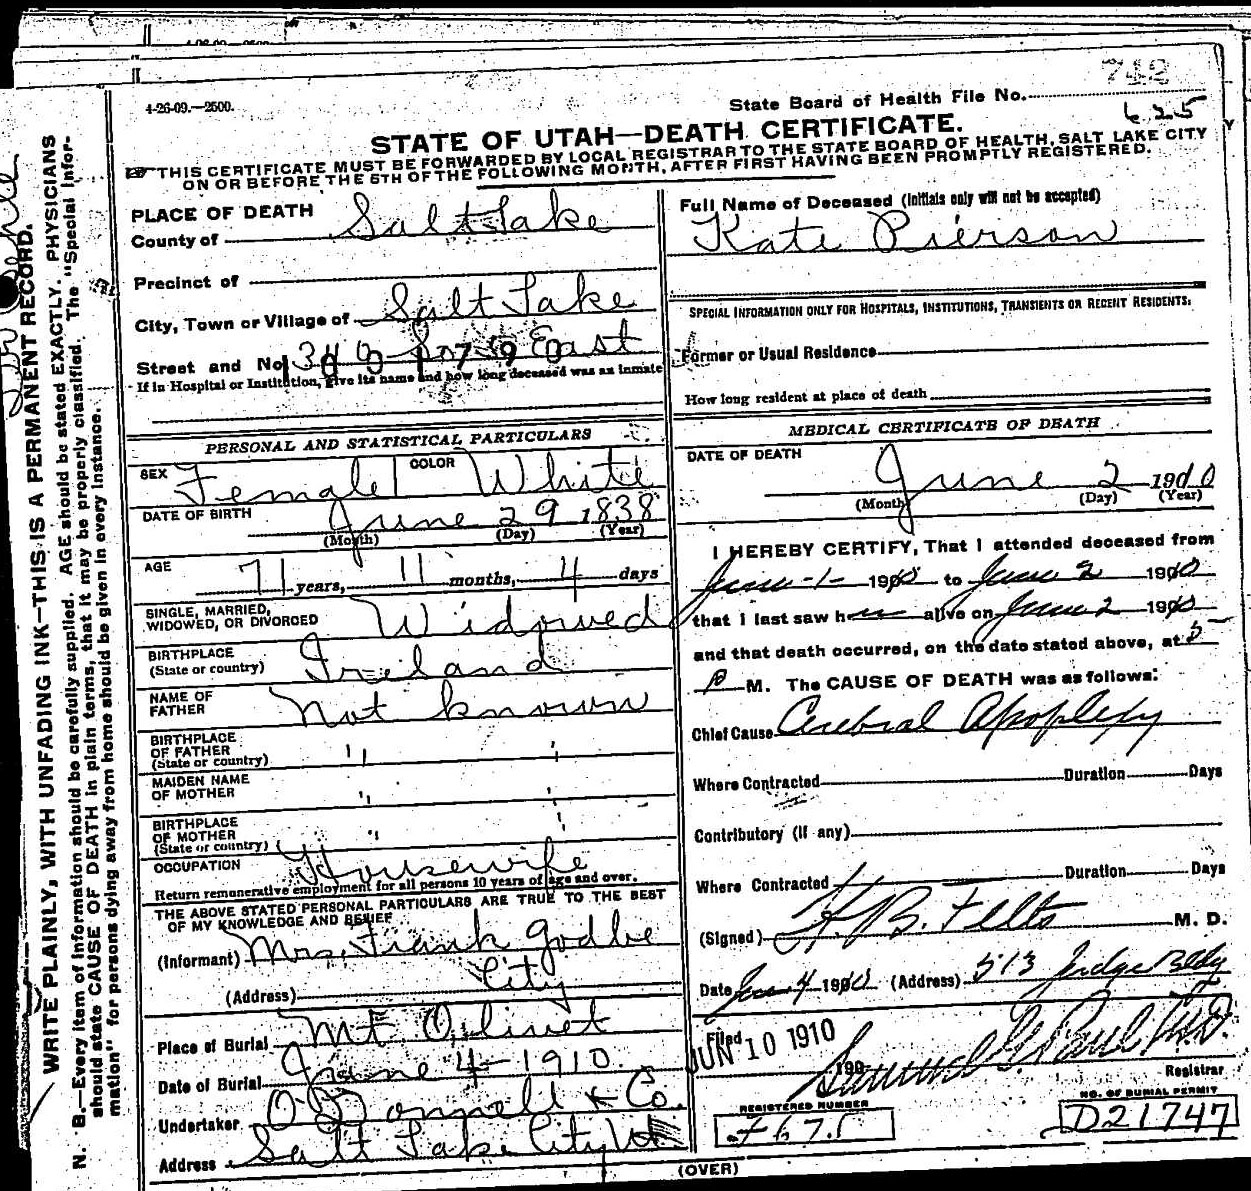 742
4-26-09.—2500.
State Board of Health File No.
625
STATE OF UTAH—DEATH CERTIFICATE.
THIS CERTIFICATE MUST BE FORWARDED BY LOCAL REGISTRAR TO THE STATE BOARD OF HEALTH, SALT LAKE CITY
ON OR BEFORE THE 5TH OF THE FOLLOWING MONTH, AFTER FIRST HAVING BEEN PROMPTLY REGISTERED.
WRITE PLAINLY, WITH UNFADING INK—THIS IS A PERMANENT RECORD.
N. B.—Every item of information should be carefully supplied. AGE should be stated EXACTLY. PHYSICIANS
should state CAUSE OF DEATH in plain terms, that it may be properly classified. The "Special Infor-
mation" for persons dying away from home should be given in every instance.
PLACE OF DEATH
County of Salt Lake
Precinct of
City, Town or Village of Salt Lake
Street and No. East
If in Hospital or Institution, give its name and how long deceased was an inmate
PERSONAL AND STATISTICAL PARTICULARS
SEX Female COLOR White
DATE OF BIRTH June 29 1838
(Month) (Day) (Year)
AGE 71 years, 11 months, 4 days
SINGLE, MARRIED,
WIDOWED, OR DIVORCED Widowed
BIRTHPLACE
(State or country) Ireland
NAME OF
FATHER Not known
BIRTHPLACE
OF FATHER
(State or country) " "
MAIDEN NAME
OF MOTHER " "
BIRTHPLACE
OF MOTHER
(State or country) " "
OCCUPATION Housewife
Return remunerative employment for all persons 10 years of age and over.
THE ABOVE STATED PERSONAL PARTICULARS ARE TRUE TO THE BEST
OF MY KNOWLEDGE AND BELIEF
(Informant) Mrs. Frank Godbe
(Address) City
Place of Burial Mt Olivet
Date of Burial June 4 - 1910.
Undertaker O'Donnell & Co.
Address Salt Lake City Ut
Full Name of Deceased (Initials only will not be accepted)
Kate Pierson
SPECIAL INFORMATION ONLY FOR HOSPITALS, INSTITUTIONS, TRANSIENTS OR RECENT RESIDENTS:
Former or Usual Residence
How long resident at place of death
MEDICAL CERTIFICATE OF DEATH
DATE OF DEATH
June 2 1910
(Month) (Day) (Year)
I HEREBY CERTIFY, That I attended deceased from
June - 1 - 1910 to June 2 1910
that I last saw her alive on June 2 1910
and that death occurred, on the date stated above, at 5
P M. The CAUSE OF DEATH was as follows:
Chief Cause Cerebral Apoplexy
Where Contracted Duration Days
Contributory (If any)
Where Contracted Duration Days
(Signed) H. B. Felts M. D.
Date June 4 1910 (Address) 513 Judge Bldg
Filed
JUN 10 1910
190
Samuel G. Paul M.D.
Registrar
REGISTERED NUMBER
F671
NO. OF BURIAL PERMIT
D21747
(OVER)